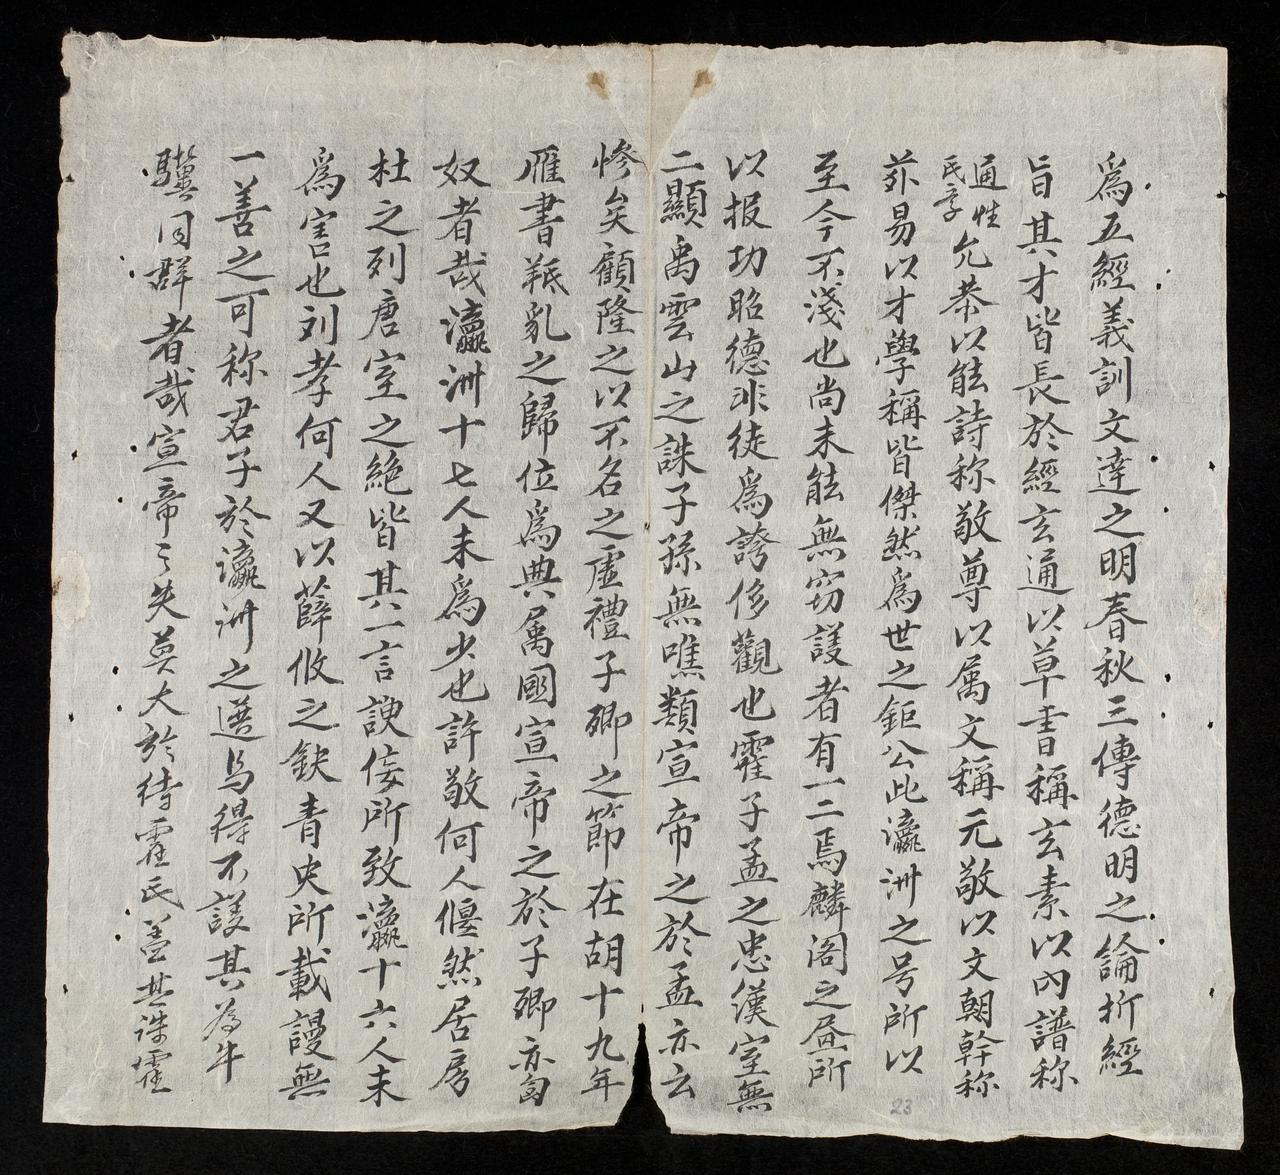 爲五經義訓文達之明春秋三傳德明之論折經
旨其才皆長於經玄通以草書稱玄素以內譜称
通性
民字
允恭以能詩称敬尊以属文稱元敬以文朝幹称
蘇易以才學稱皆傑然爲世之鉅公此瀛洲之号所以
至今不淺也尚未能無窃議者有一二焉麟阁之昼所
以报功昭德非徒爲誇侈觀也霍子孟之忠漢室無
二顯禹雲山之誅子孫無噍類宣帝之於孟亦云
慘矣顧隆之以不名之虛禮子卿之節在胡十九年
雁書羝乳之歸位爲典属國宣帝之於子卿亦匈
奴者哉瀛洲十七人未爲少也許敬何人偃然居房
杜之列唐室之絶皆其一言諛佞所致瀛十六人未
爲害也刘孝何人又以薛攸之缺青史所載謾無
一善之可称君子於瀛洲之選烏得不議其为牛
驥同群者哉宣帝之失莫大於待霍氏盖其誅霍
23